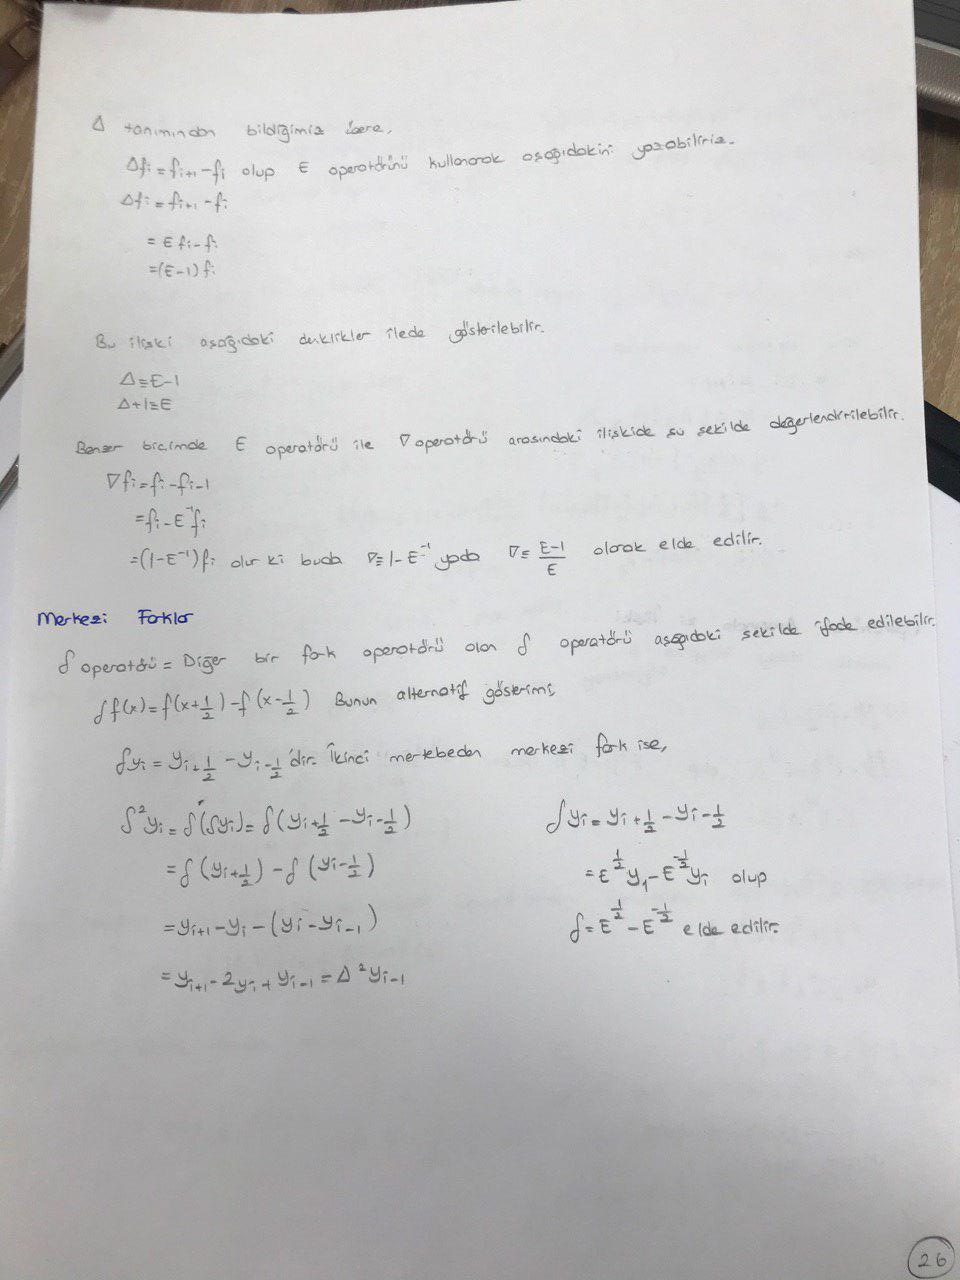 Δ tanımından bildiğimiz üzere,
Δfi = fi+1 - fi olup E operatörünü kullanarak aşağıdakini yazabiliriz.
Δfi = fi+1 - fi
= E fi - fi
= (E-1) fi
Bu ilişki aşağıdaki denklikler ilede gösterilebilir.
Δ ≡ E-1
Δ+1 ≡ E
Benzer biçimde E operatörü ile ∇ operatörü arasındaki ilişkide şu şekilde değerlendirilebilir.
∇fi = fi - fi-1
= fi - E⁻¹fi
= (1-E⁻¹)fi olur ki buda ∇ ≡ 1-E⁻¹ yada ∇ ≡ (E-1)/E olarak elde edilir.
Merkezi Farklar
δ operatörü = Diğer bir fark operatörü olan δ operatörü aşağıdaki şekilde ifade edilebilir.
δf(x) = f(x+1/2) - f(x-1/2) Bunun alternatif gösterimi,
δyi = yi+1/2 - yi-1/2 'dir. İkinci mertebeden merkezi fark ise,
δ²yi = δ(δyi) = δ(yi+1/2 - yi-1/2)
= δ(yi+1/2) - δ(yi-1/2)
= yi+1 - yi - (yi - yi-1)
= yi+1 - 2yi + yi-1 = Δ²yi-1
δyi = yi+1/2 - yi-1/2
= E^1/2 y1 - E^-1/2 yi olup
δ = E^1/2 - E^-1/2 elde edilir.
26